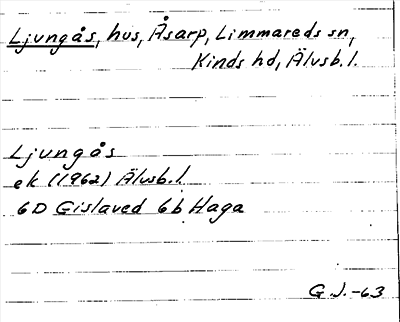 Ljungås, hus, Åsarp, Limmareds sn,
Kinds hd, Älvsb. l.
Ljungås
ek (1962) Älvsb. l.
6D Gislaved 6b Haga
G.J.-63